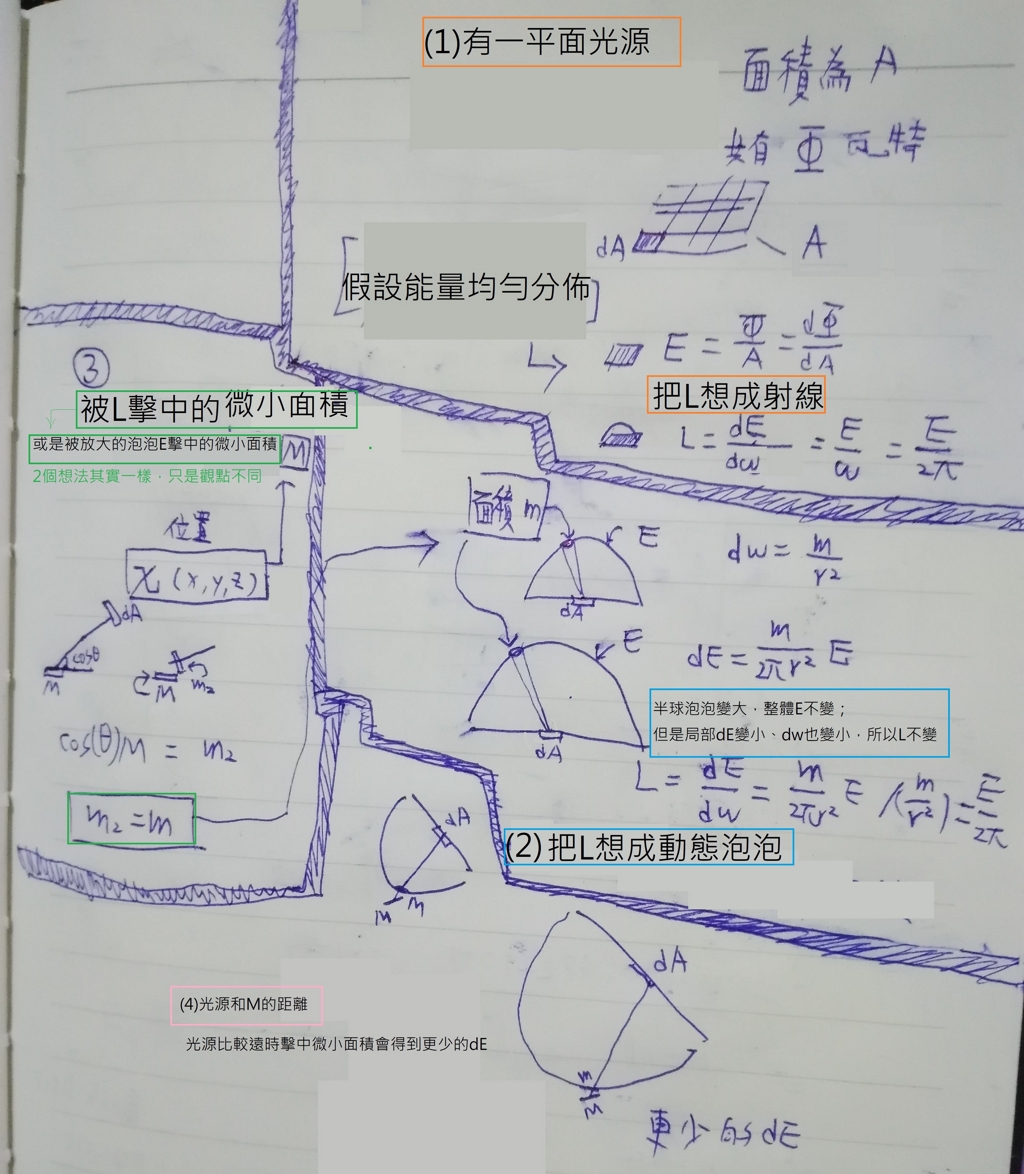 (1)有一平面光源
面積為 A
共有 Φ 瓦特
dA
A
假設能量均勻分佈
E = Φ/A = dΦ/dA
把L想成射線
L = dE/dω = E/ω = E/2π
③
被L擊中的微小面積
或是被放大的泡泡E擊中的微小面積
M
2個想法其實一樣，只是觀點不同
位置
x (x,y,z)
dA
cosθ
M
M
m₂
cos(θ)M = m₂
m₂=m
面積 m
E
dA
dω = m/r²
E
dA
dE = m/2πr² E
半球泡泡變大，整體E不變；
但是局部dE變小、dw也變小，所以L不變
L = dE/dω = m/2πr² E /(m/r²) = E/2π
(2)把L想成動態泡泡
dA
M
m
dA
m
M
(4)光源和M的距離
光源比較遠時擊中微小面積會得到更少的dE
更少的dE